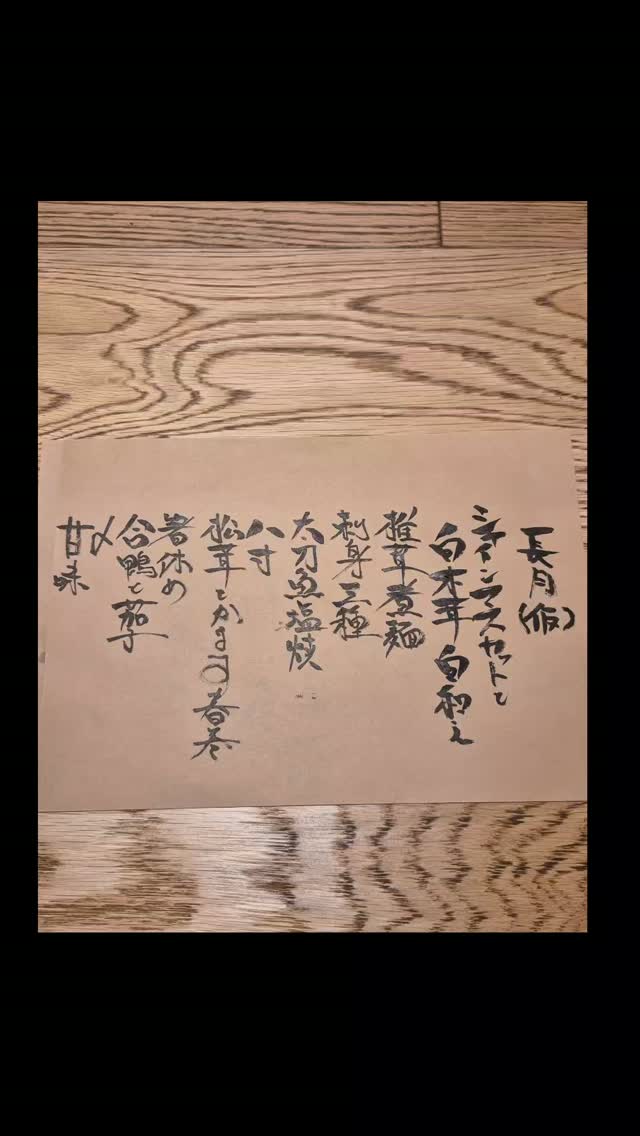 長月(仮)
シャインマスカットと
白木耳 白和え
椎茸煮麺
刺身三種
太刀魚塩焼
八寸
松茸とかます 春巻
箸休め
合鴨と茄子
〆
甘味